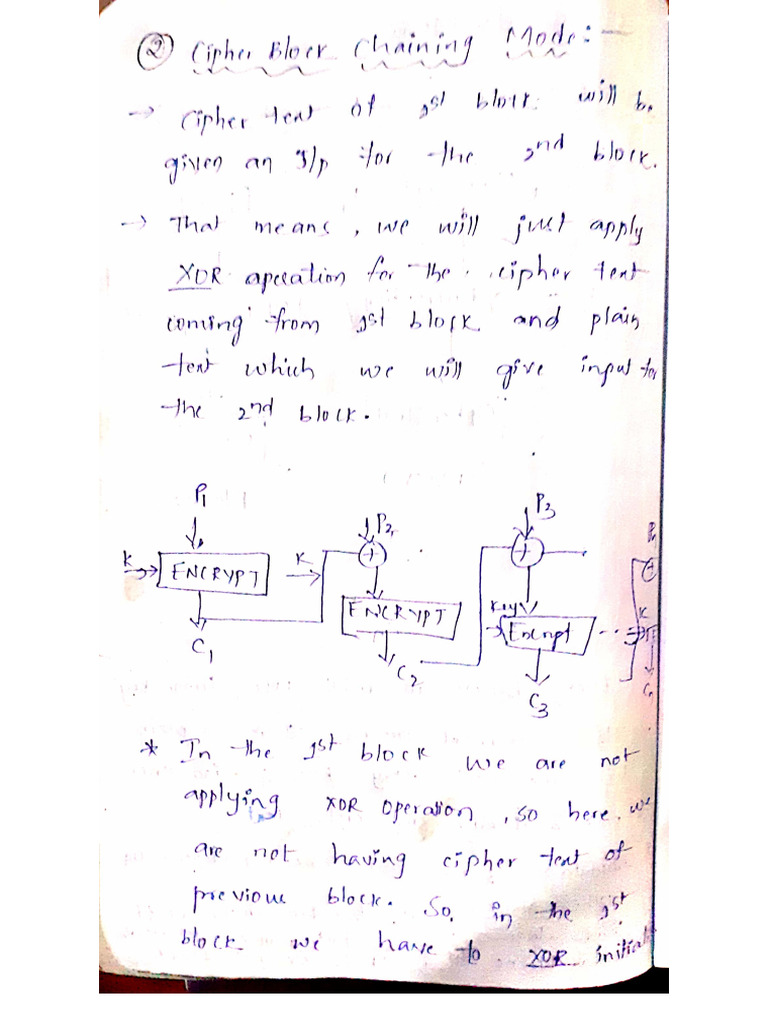 ② Cipher Block Chaining Mode:-
→ Cipher text of 1st block will be
given an I/p for the 2nd block.
→ That means, we will just apply
XOR operation for the cipher text
coming from 1st block and plain
text which we will give input for
the 2nd block.
P1 P2 P3
K ENCRYPT K + +
ENCRYPT Key Encrypt ... K
C1 C2 C3
* In the 1st block we are not
applying XOR operation, so here we
are not having cipher text of
previous block. So, in the 1st
block we have to XOR initial